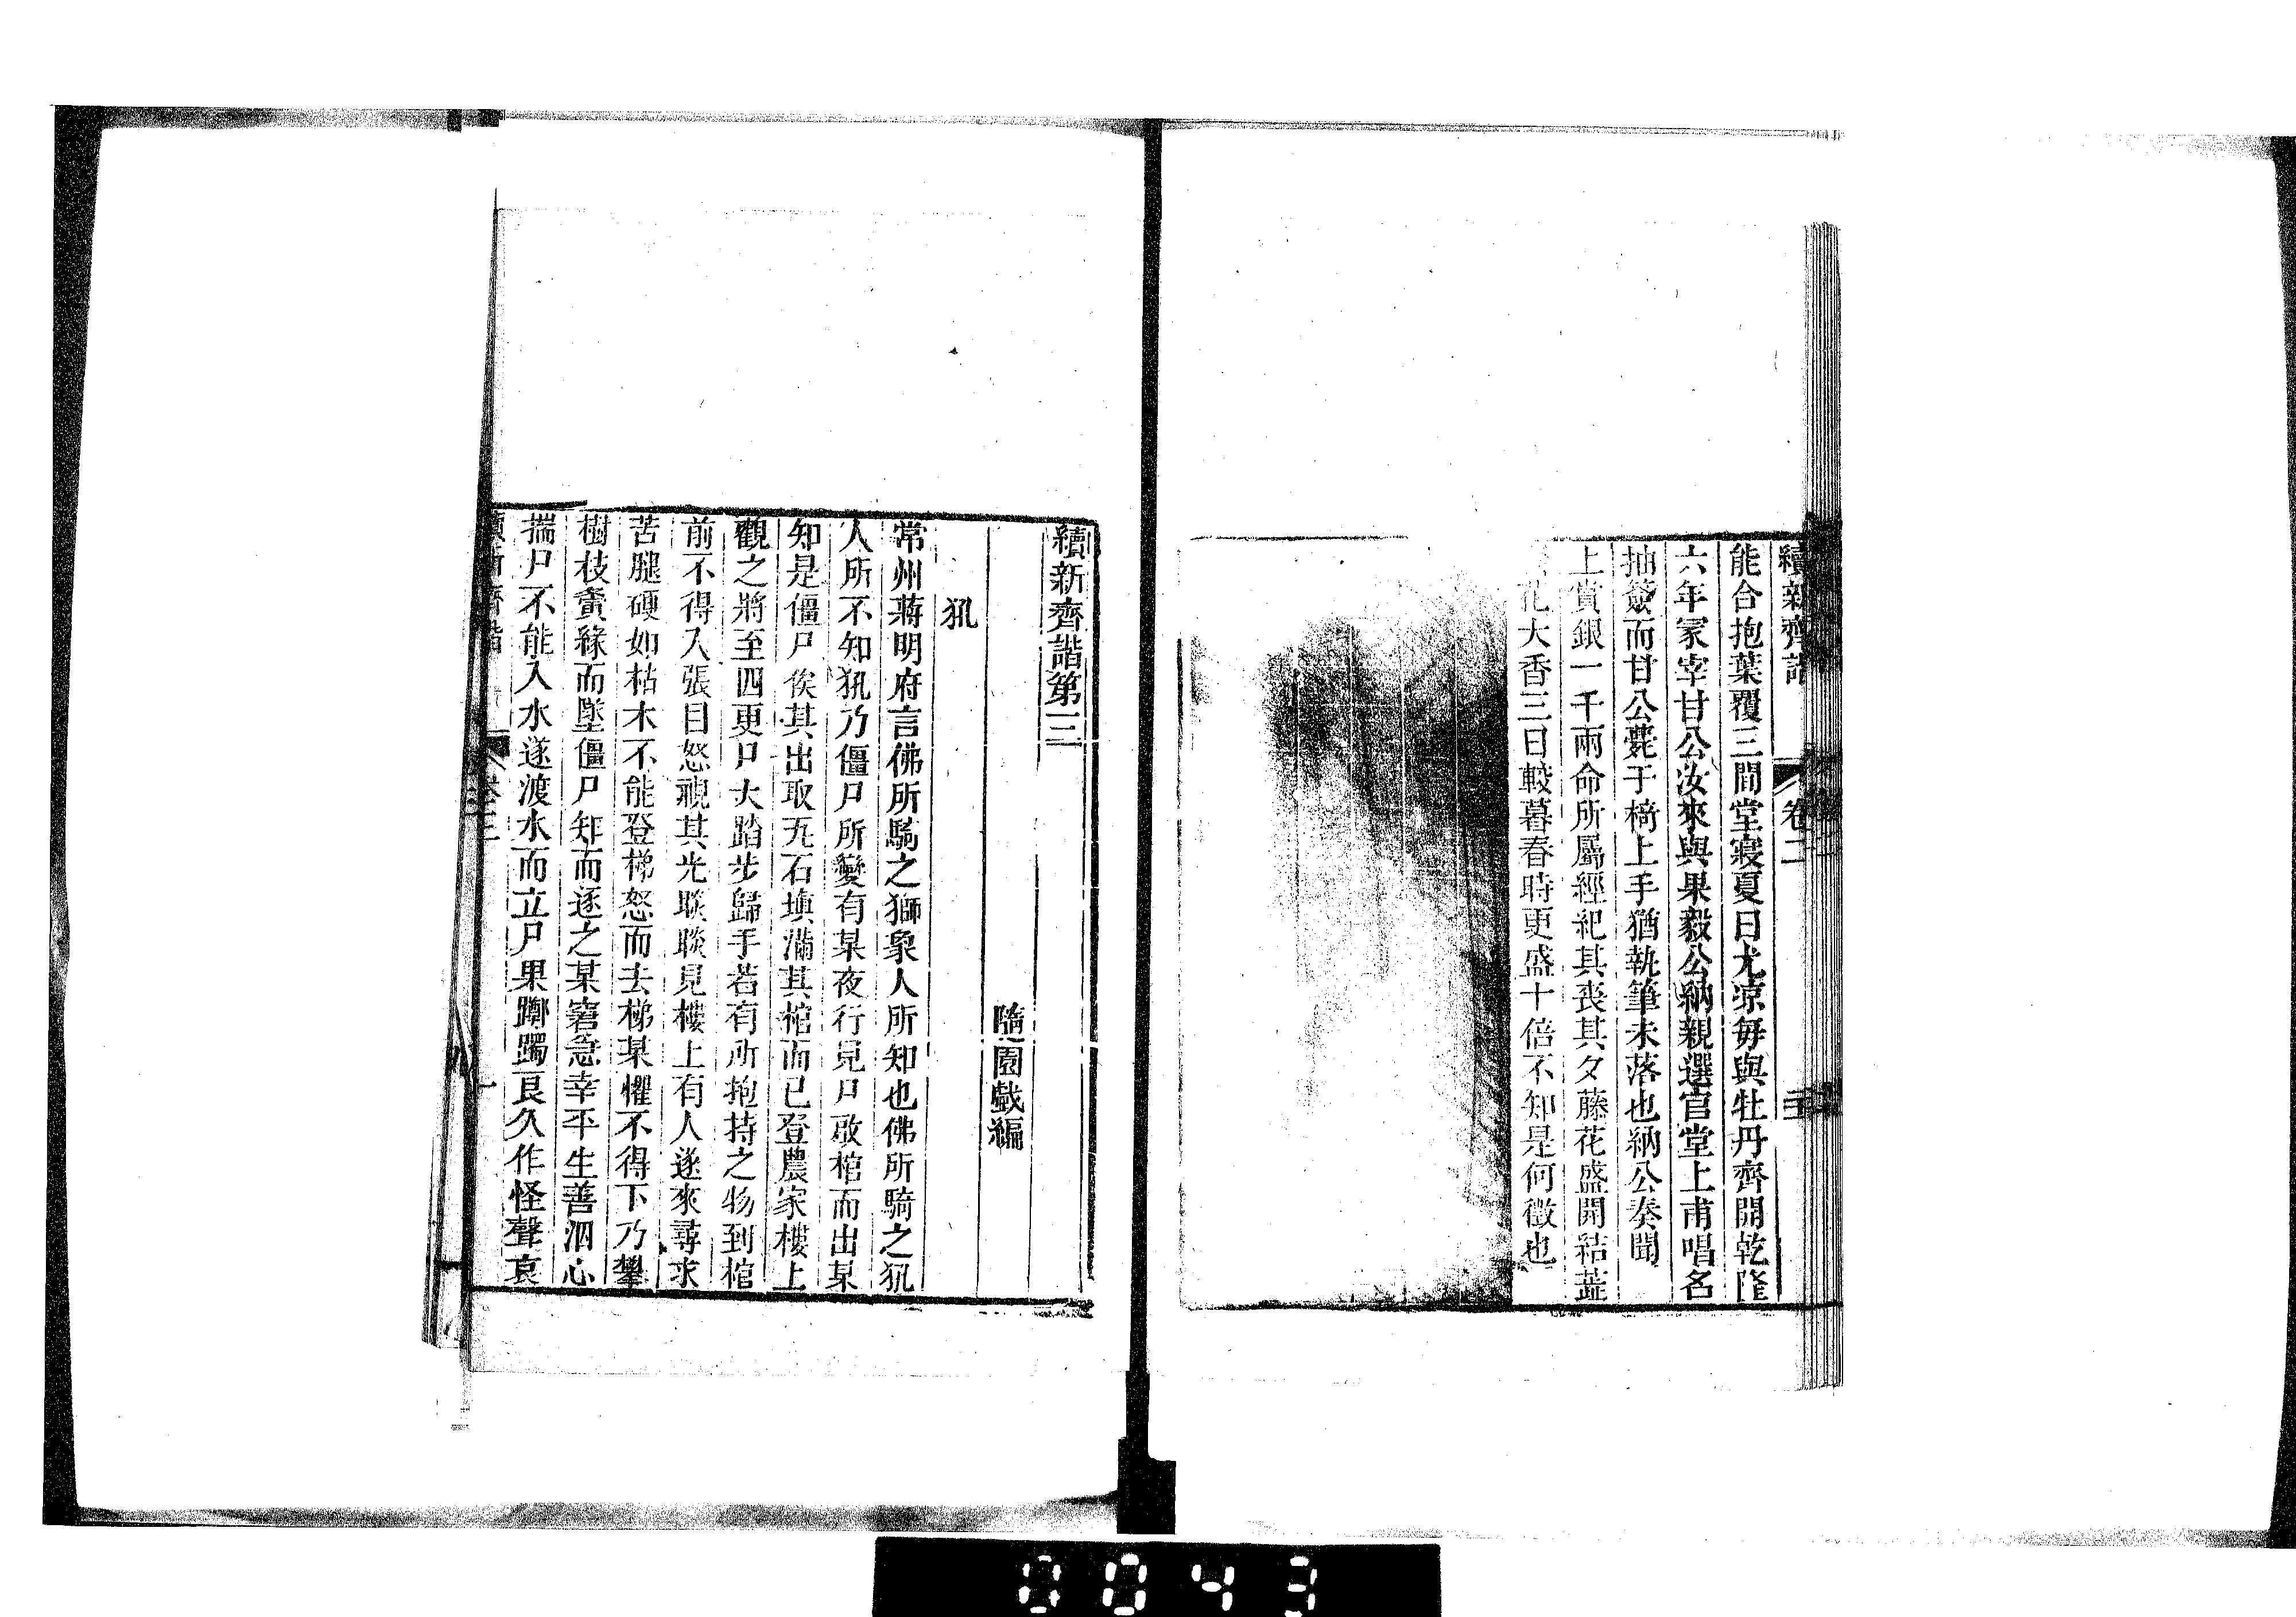 續新齊諧
卷二
能合抱葉覆三間堂寢夏日尤凉每與牡丹齊開乾隆
六年冢宰甘公汝來與果毅公納親選官堂上甫唱名
抽簽而甘公薨于椅上手猶執筆未落也納公奏聞
上賞銀一千兩命所屬經紀其喪其夕藤花盛開結蕋
花大香三日較暮春時更盛十倍不知是何徵也
續新齊諧第三
隨園戲編
犼
常州蔣明府言佛所騎之獅象人所知也佛所騎之犼
人所不知犼乃僵尸所變有某夜行見尸啟棺而出某
知是僵尸俟其出取瓦石填滿其棺而已登農家樓上
觀之將至四更尸大踏步歸手若有所抱持之物到棺
前不得入張目怒視其光睒睒見樓上有人遂來尋求
苦腿硬如枯木不能登梯怒而去梯某懼不得下乃攀
樹枝夤緣而墜僵尸知而逐之某窘急幸平生善泅心
揣尸不能入水遂渡水而立尸果躑躅良久作怪聲哀
續新齊諧
卷三
一
0043